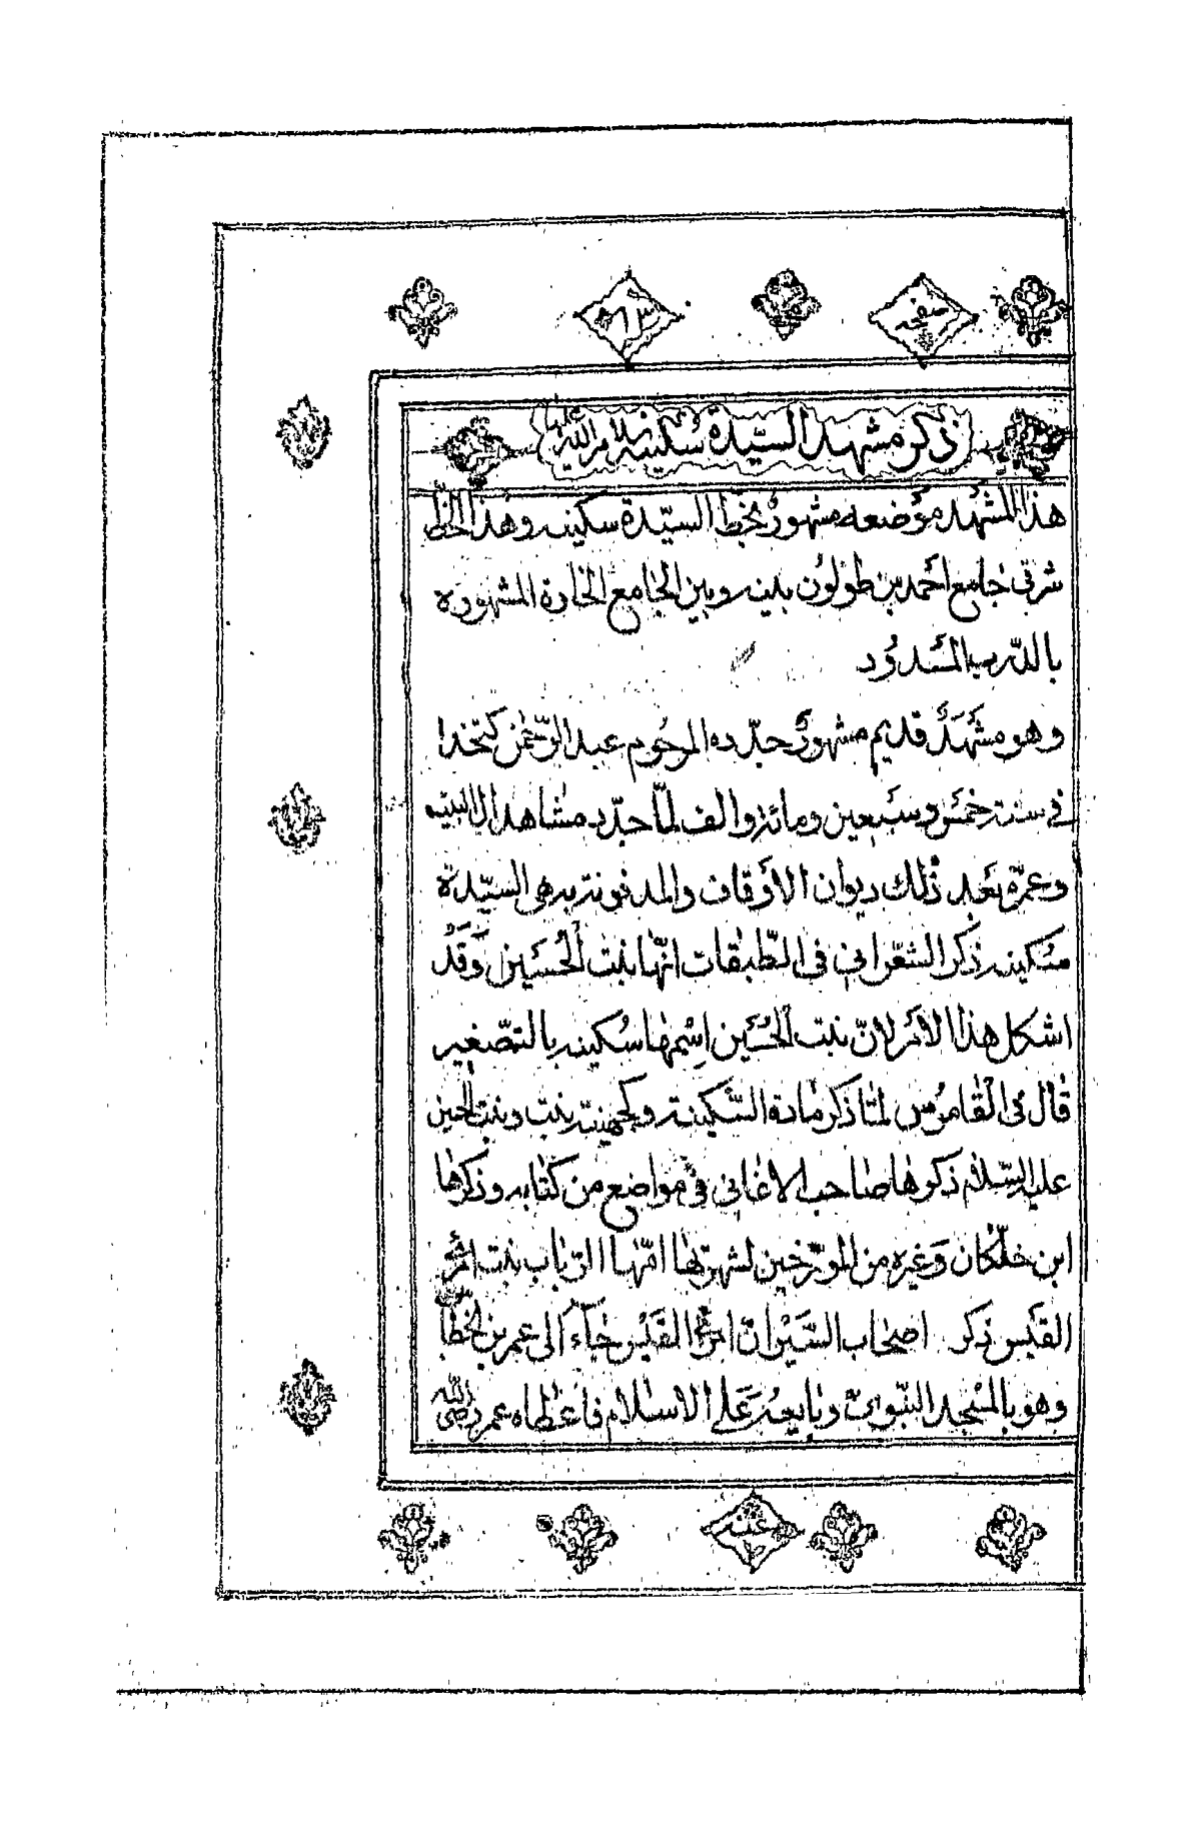 صفحه
٩٣
ذكر مشهد السيّدة سكينه سلام الله
هذا المشهد موضعه مشهور بخط السيّدة سكينه وهذا الخط
شرقى جامع احمد بن طولون بينه وبين الجامع الحارة المشهوره
بالدرب المسدود
وهو مشهد قديم مشهور جدّده المرحوم عبد الرّحمن كتخدا
فى سنة خمس وسبعين ومائة والف لمّا جدّد مشاهد ال البيت
وعمره بعد ذلك ديوان الأوقاف والمدفونة به هى السيّدة
سكينه ذكر الشعرانى فى الطّبقات انّها بنت الحسين وقد
اشكل هذا الأمر لانّ بنت الحسين اسمها سكينه بالتّصغير
قال فى القاموس لمّا ذكر مادة السّكينة وكجهينة بنت وبنت الحسين
عليه السّلام ذكرها صاحب الاغانى فى مواضع من كتابه وذكرها
ابن خلّكان وغيره من المؤرّخين لشهرتها امّها الرّباب بنت امرئ
القيس ذكر اصحاب السّير انّ امرئ القيس جآء الى عمر بن الخطّاب
وهو بالمسجد النّبوىّ وبايعه على الاسلام فاعطاه عمر رضى الله
عنه